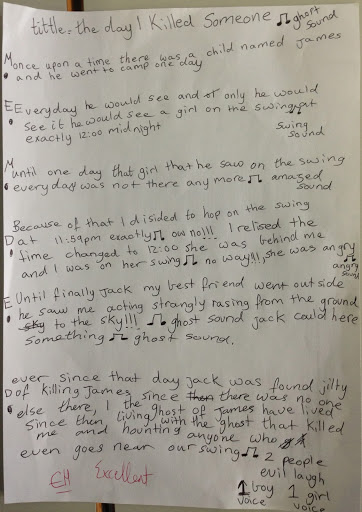 tittle: the day I Killed Someone ♫ ghost sound
M once upon a time there was a child named james
• and he went to camp one day
E Everyday he would see and only he would
• see it he would see a girl on the swing at
exactly 12:00 midnight swing sound
M until one day that girl that he saw on the swing
• everyday was not there any more ♫ amazed sound
Because of that I disided to hop on the swing
D at 11:59pm exactly ♫ ow no!!! I relised the
• time changed to 12:00 she was behind me
and I was on her swing ♫ no way!!!, she was angry
♫ angry sound
E Until finally jack my best friend went outside
• he saw me acting strangly rasing from the ground
sky to the sky!!! ♫ ghost sound jack could here
something ♫ ghost sound.
ever since that day jack was found jilty
D of killing James since then there was no one
• else there, I the living ghost of james have lived
since then with the ghost that killed
me and hounting anyone who
even goes near our swing ♫ 2 people
evil laugh
1 boy voice 1 girl voice
EH Excellent